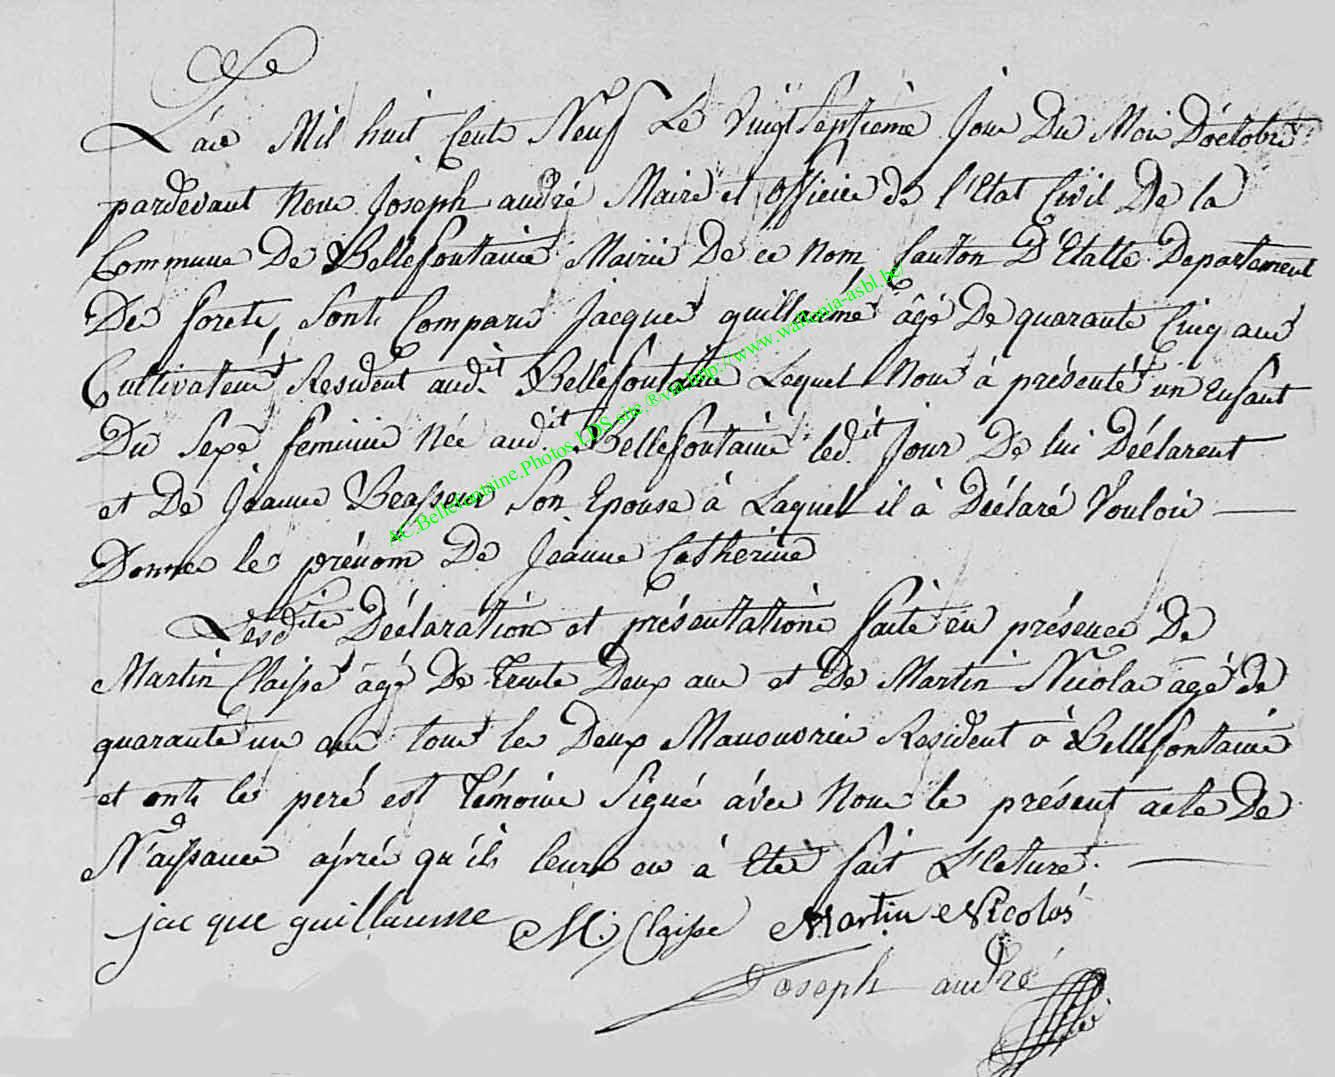 L'an Mil huit Cent Neuf Le Vingt Septieme Jour Du Moi D'octobre
pardevant Nous Joseph andré Maire et officier de l'Etat Civil De la
Commune De Bellefontaine Mairie De ce Nom Canton D'Etalle Departement
Des forets, sont Comparu Jacques guillaume âgé De quarante Cinq ans
Cultivateur Resident audit Bellefontaine Lequel Nous à présenté un Enfant
Du Sexe feminin Née audit Bellefontaine ledit Jour De lui Déclarent
et De Jeanne Brasseur Son Epouse à Laquel il à Déclaré Vouloir
Donner le prénom De Jeanne Catherine
Lesdite Déclaration et présentation faite en présence De
Martin Claisse âgé De trente Deux ans et De Martin Nicolas âgé de
quarante un ans tous les Deux Manouvrier Resident à Bellefontaine
et onts les peré est Témoins Signé avec Nous le présent acte De
Naissance aprés qu'ils leurs en à Eté fait L'eture.
jacque guillaume M. Claisse Martin Nicolas
Joseph andré
AC.Bellefontaine.Photos.LDS-site.®via.http://www.wallonia-asbl.be/